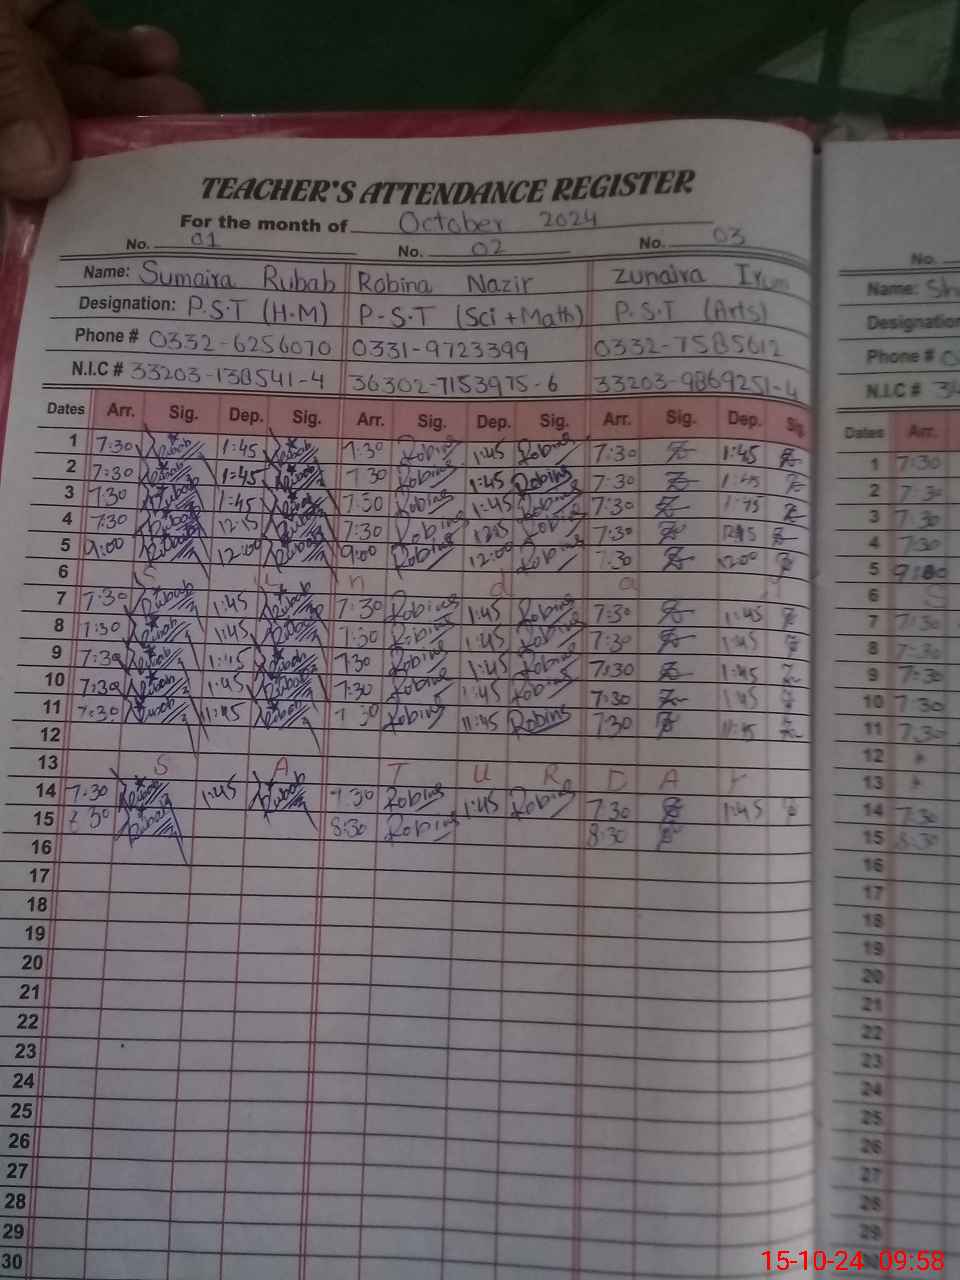 TEACHER'S ATTENDANCE REGISTER
For the month of October 2024
No. 01 No. 02 No. 03 No.
Name: Sumaira Rubab Robina Nazir Zunaira Irum Name: Sh
Designation: P.S.T (H.M) P-S-T (Sci+Math) P.S.T (Arts) Designation
Phone # 0332-6256070 0331-9723399 0332-7585612 Phone # 0
N.I.C # 33203-138541-4 36302-7153975-6 33203-9869251-4 N.I.C # 34
Dates Arr. Sig. Dep. Sig. Arr. Sig. Dep. Sig. Arr. Sig. Dep. Sig. Dates Arr.
1 7:30 Rubab 1:45 Rubab 7:30 Robina 1:45 Robina 7:30 1:45 1 7:30
2 7:30 Rubab 1:45 Rubab 7:30 Robina 1:45 Robina 7:30 1:45 2 7:30
3 7:30 Rubab 1:45 Rubab 7:30 Robina 1:45 Robina 7:30 1:45 3 7:30
4 7:30 Rubab 12:15 Rubab 7:30 Robina 12:15 Robina 7:30 12:15 4 7:30
5 9:00 Rubab 12:00 Rubab 9:00 Robina 12:00 Robina 7:30 12:00 5 9:00
6 S u n d a y 6 S
7 7:30 Rubab 1:45 Rubab 7:30 Robina 1:45 Robina 7:30 1:45 7 7:30
8 7:30 Rubab 1:45 Rubab 7:30 Robina 1:45 Robina 7:30 1:45 8 7:30
9 7:30 Rubab 1:45 Rubab 7:30 Robina 1:45 Robina 7:30 1:45 9 7:30
10 7:30 Rubab 1:45 Rubab 7:30 Robina 1:45 Robina 7:30 1:45 10 7:30
11 7:30 Rubab 11:45 Rubab 7:30 Robina 11:45 Robina 7:30 11:45 11 7:30
12 12
13 S A T U R D A Y 13
14 7:30 Rubab 1:45 Rubab 7:30 Robina 1:45 Robina 7:30 1:45 14 7:30
15 8:30 Rubab 8:30 Robina 8:30 15 8:30
16 16
17 17
18 18
19 19
20 20
21 21
22 22
23 23
24 24
25 25
26 26
27 27
28 28
29 29
30
15-10-24 09:58